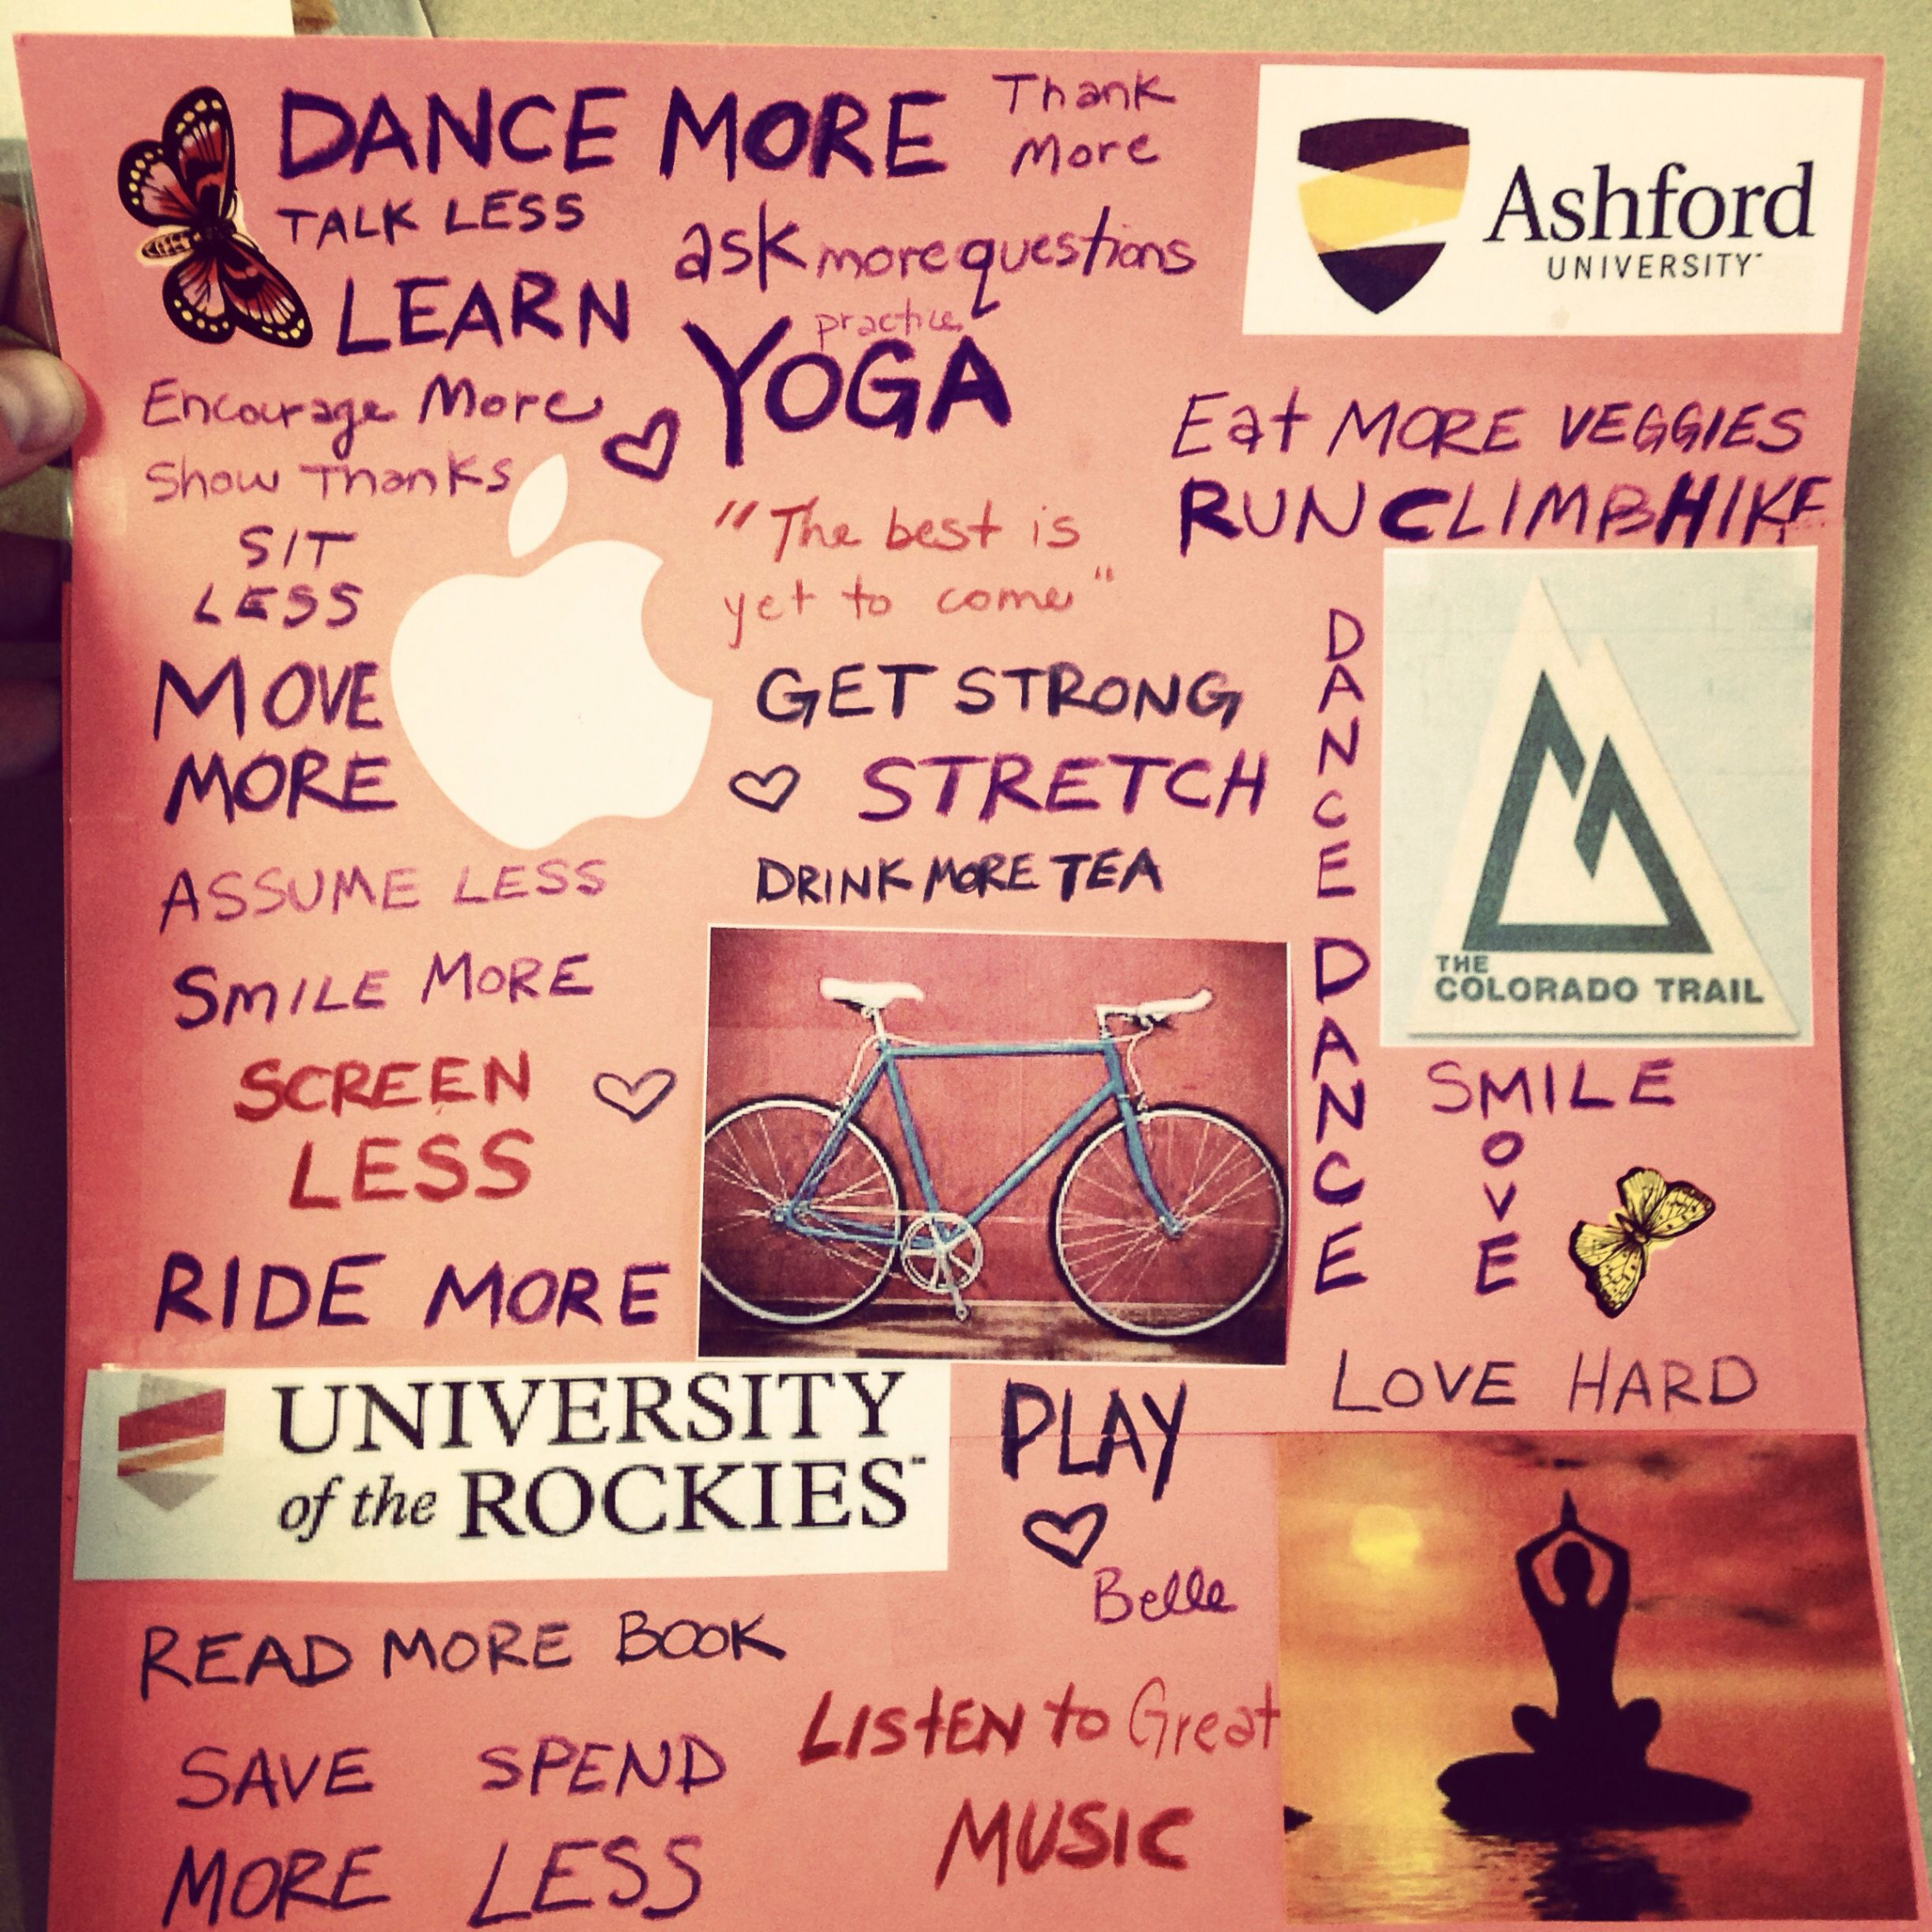 DANCE MORE
Thank
More
TALK LESS
ask more questions
LEARN
practice
YOGA
Ashford
UNIVERSITY
Encourage More
Show Thanks
SIT
LESS
MOVE
MORE
"The best is
yet to come"
Eat MORE VEGGIES
RUN CLIMB HIKE
GET STRONG
STRETCH
DRINK MORE TEA
DANCE DANCE
THE
COLORADO TRAIL
ASSUME LESS
SMILE MORE
SCREEN
LESS
RIDE MORE
SMILE
MOVE
LOVE HARD
UNIVERSITY
of the ROCKIES™
PLAY
Belle
READ MORE BOOK
LISTEN to Great
MUSIC
SAVE SPEND
MORE LESS